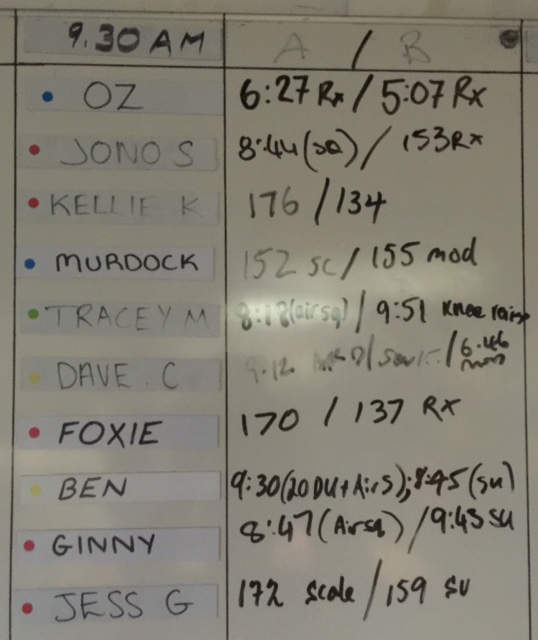 9.30 AM A / B
OZ 6:27 Rx / 5:07 Rx
JONO S 8:44 (sq) / 153 Rx
KELLIE K 176 / 134
MURDOCK 152 sc / 155 mod
TRACEY M 8:18 (air sq) / 9:51 knee raise
DAVE C 9:12 / 6:46
FOXIE 170 / 137 RX
BEN 9:30 (20 DU + AirS); 8:45 (su)
GINNY 8:47 (Airsq) / 9:43 su
JESS G 172 scale / 159 su